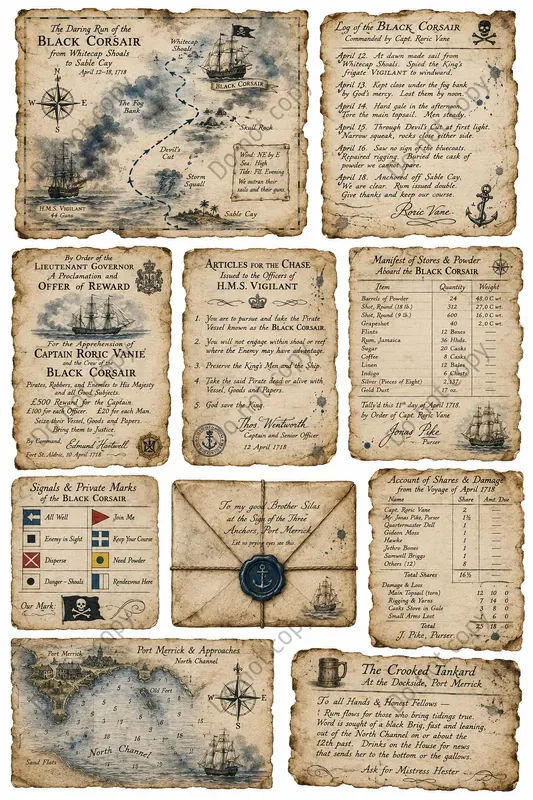 The Daring Run of the
BLACK CORSAIR
from Whitecap Shoals
to Sable Cay
April 12–18, 1718
Whitecap
Shoals
BLACK CORSAIR
The Fog
Bank
Skull Rock
Devil's
Cut
Storm
Squall
Wind: NE by E
Sea: High
Tide: Fll. Evening
We outran their
sails and their guns.
H.M.S. VIGILANT
44 Guns
Sable Cay
Log of the BLACK CORSAIR
Commanded by Capt. Roric Vane
April 12. At dawn made sail from
Whitecap Shoals. Spied the King's
frigate VIGILANT to windward.
April 13. Kept close under the fog bank
by God's mercy. Lost them by noon.
April 14. Hard gale in the afternoon.
Tore the main topsail. Men steady.
April 15. Through Devil's Cut at first light.
Narrow squeak, rocks close either side.
April 16. Saw no sign of the bluecoats.
Repaired rigging. Buried the cask of
powder we cannot spare.
April 18. Anchored off Sable Cay.
We are clear. Rum issued double.
Give thanks and keep our course.
Roric Vane
By Order of the
LIEUTENANT GOVERNOR
A Proclamation and
OFFER OF REWARD
For the Apprehension of
CAPTAIN RORIC VANIE
and the Crew of the
BLACK CORSAIR
Pirates, Robbers, and Enemies to His Majesty
and all Good Subjects.
£500 Reward for the Captain.
£100 for each Officer. £20 for each Man.
Seize their Vessel, Goods and Papers.
Bring them to Justice.
By Command,
Edmund Hartwell
Fort St. Aldric, 10 April 1718
ARTICLES FOR THE CHASE
Issued to the Officers of
H.M.S. VIGILANT
1. You are to pursue and take the Pirate
Vessel known as the BLACK CORSAIR.
2. You will not engage within shoal or reef
where the Enemy may have advantage.
3. Preserve the King's Men and the Ship.
4. Take the said Pirate dead or alive with
Vessel, Goods and Papers.
5. God save the King.
Thos Wentworth
Captain and Senior Officer
12 April 1718
Manifest of Stores & Powder
Aboard the BLACK CORSAIR
Item Quantity Weight
Barrels of Powder 24 48,0 C wt.
Shot, Round (18 lb.) 312 27,0 C wt.
Shot, Round (9 lb.) 600 16,0 C wt.
Grapeshot 40 2,0 C wt.
Flints 12 Bones
Rum, Jamaica 36 Hhds.
Sugar 20 Casks
Coffee 8 Casks
Linen 12 Bales
Indigo 6 Chests
Silver (Pieces of Eight) 2,137
Gold Dust 17 oz.
Tally'd this 11th day of April 1718.
by Order of Capt. Roric Vane
Jonas Pike
Purser
Signals & Private Marks
of the BLACK CORSAIR
All Well Join Me
Enemy in Sight Keep Your Course
Disperse Need Powder
Danger – Shoals Rendezvous Here
Our Mark:
To my good Brother Silas
at the Sign of the Three
Anchors, Port Merrick
Let no prying eyes see this.
Account of Shares & Damage
from the Voyage of April 1718
Name Share Amt. Due
Capt. Roric Vane 2
Mr. Jonas Pike, Purser 1½
Quartermaster Doll
Gideon Moss
Hawke
Jethro Bones
Samwell Briggs
Others (12) 8
Total Shares 16½
Damage & Loss
Main Topsail (torn) 12 10 0
Rigging & Yarns 7 14 0
Casks Stove in Gale 3 8 0
Small Arms Lost 1 6 0
Total 25 18 0
J. Pike, Purser
Port Merrick & Approaches
North Channel
Port Merrick
Old Fort
North Channel
Sand Flats
The Crooked Tankard
At the Dockside, Port Merrick
To all Hands & Honest Fellows —
Rum flows for those who bring tidings true.
Word is sought of a black Brig, fast and leaning,
out of the North Channel on or about the
12th past. Drinks on the House for news
that sends her to the bottom or the gallows.
Ask for Mistress Hester